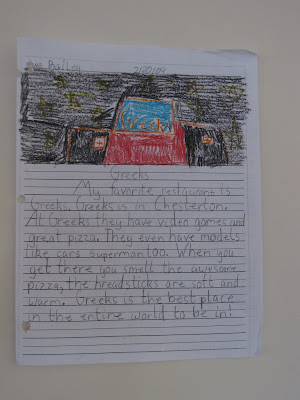 Bailey 2/20/09
Greeks
Greeks
My favorite restaurant is
Greeks. Greeks is in Chesterton.
At Greeks they have video games and
great pizza. They even have models
like cars superman too. When you
get there you smell the awesome
pizza, the breadsticks are soft and
warm. Greeks is the best place
in the entire world to be in!